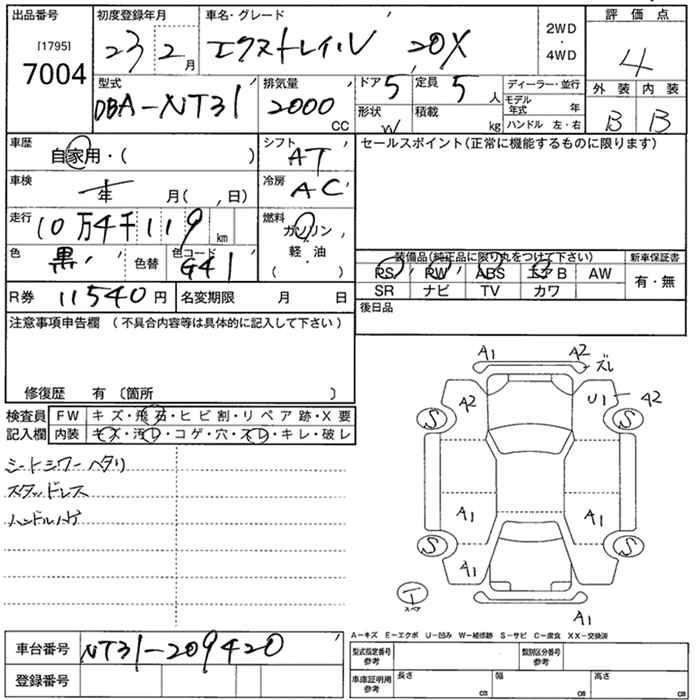 出品番号 初度登録年月 車名・グレード 評価点
[1795] 7004 23 2月 エクストレイル 20X 2WD・4WD 4
型式 排気量 ドア 定員 ディーラー・並行 外装 内装
DBA-NT31 2000 CC 5 5人 モデル年式 年 B B
形状 W 積載 kg ハンドル 左・右
車歴 自家用・( ) シフト AT セールスポイント(正常に機能するものに限ります)
車検 年 月( 、日) 冷房 AC
走行 10万4千119km 燃料 ガソリン
軽・油
( )
色 黒 色替 色コード G41 装備品(純正品に限り丸をつけて下さい) 新車保証書
PS PW ABS エアB AW 有・無
SR ナビ TV カワ
R券 11540円 名変期限 月 日 後日品
注意事項申告欄 (不具合内容等は具体的に記入して下さい)
修復歴 有 (箇所 )
検査員 FW キズ・飛石・ヒビ割・リペア跡・X要
記入欄 内装 キズ・汚レ・コゲ・穴・スレ・キレ・破レ
シートシワーヘタリ
スタッドレス
ハンドルハゲ
A1 A2 ズレ
A2 U1 A2
S S
A1 A1
S S
A1
T
スペア
A1
A-キズ E-エクボ U-凹み W-補修跡 S-サビ C-腐食 XX-交換済
車台番号 NT31-209420 型式指定番号 参考 類別区分番号 参考
登録番号 車庫証明用 参考 長さ cm 幅 cm 高さ cm